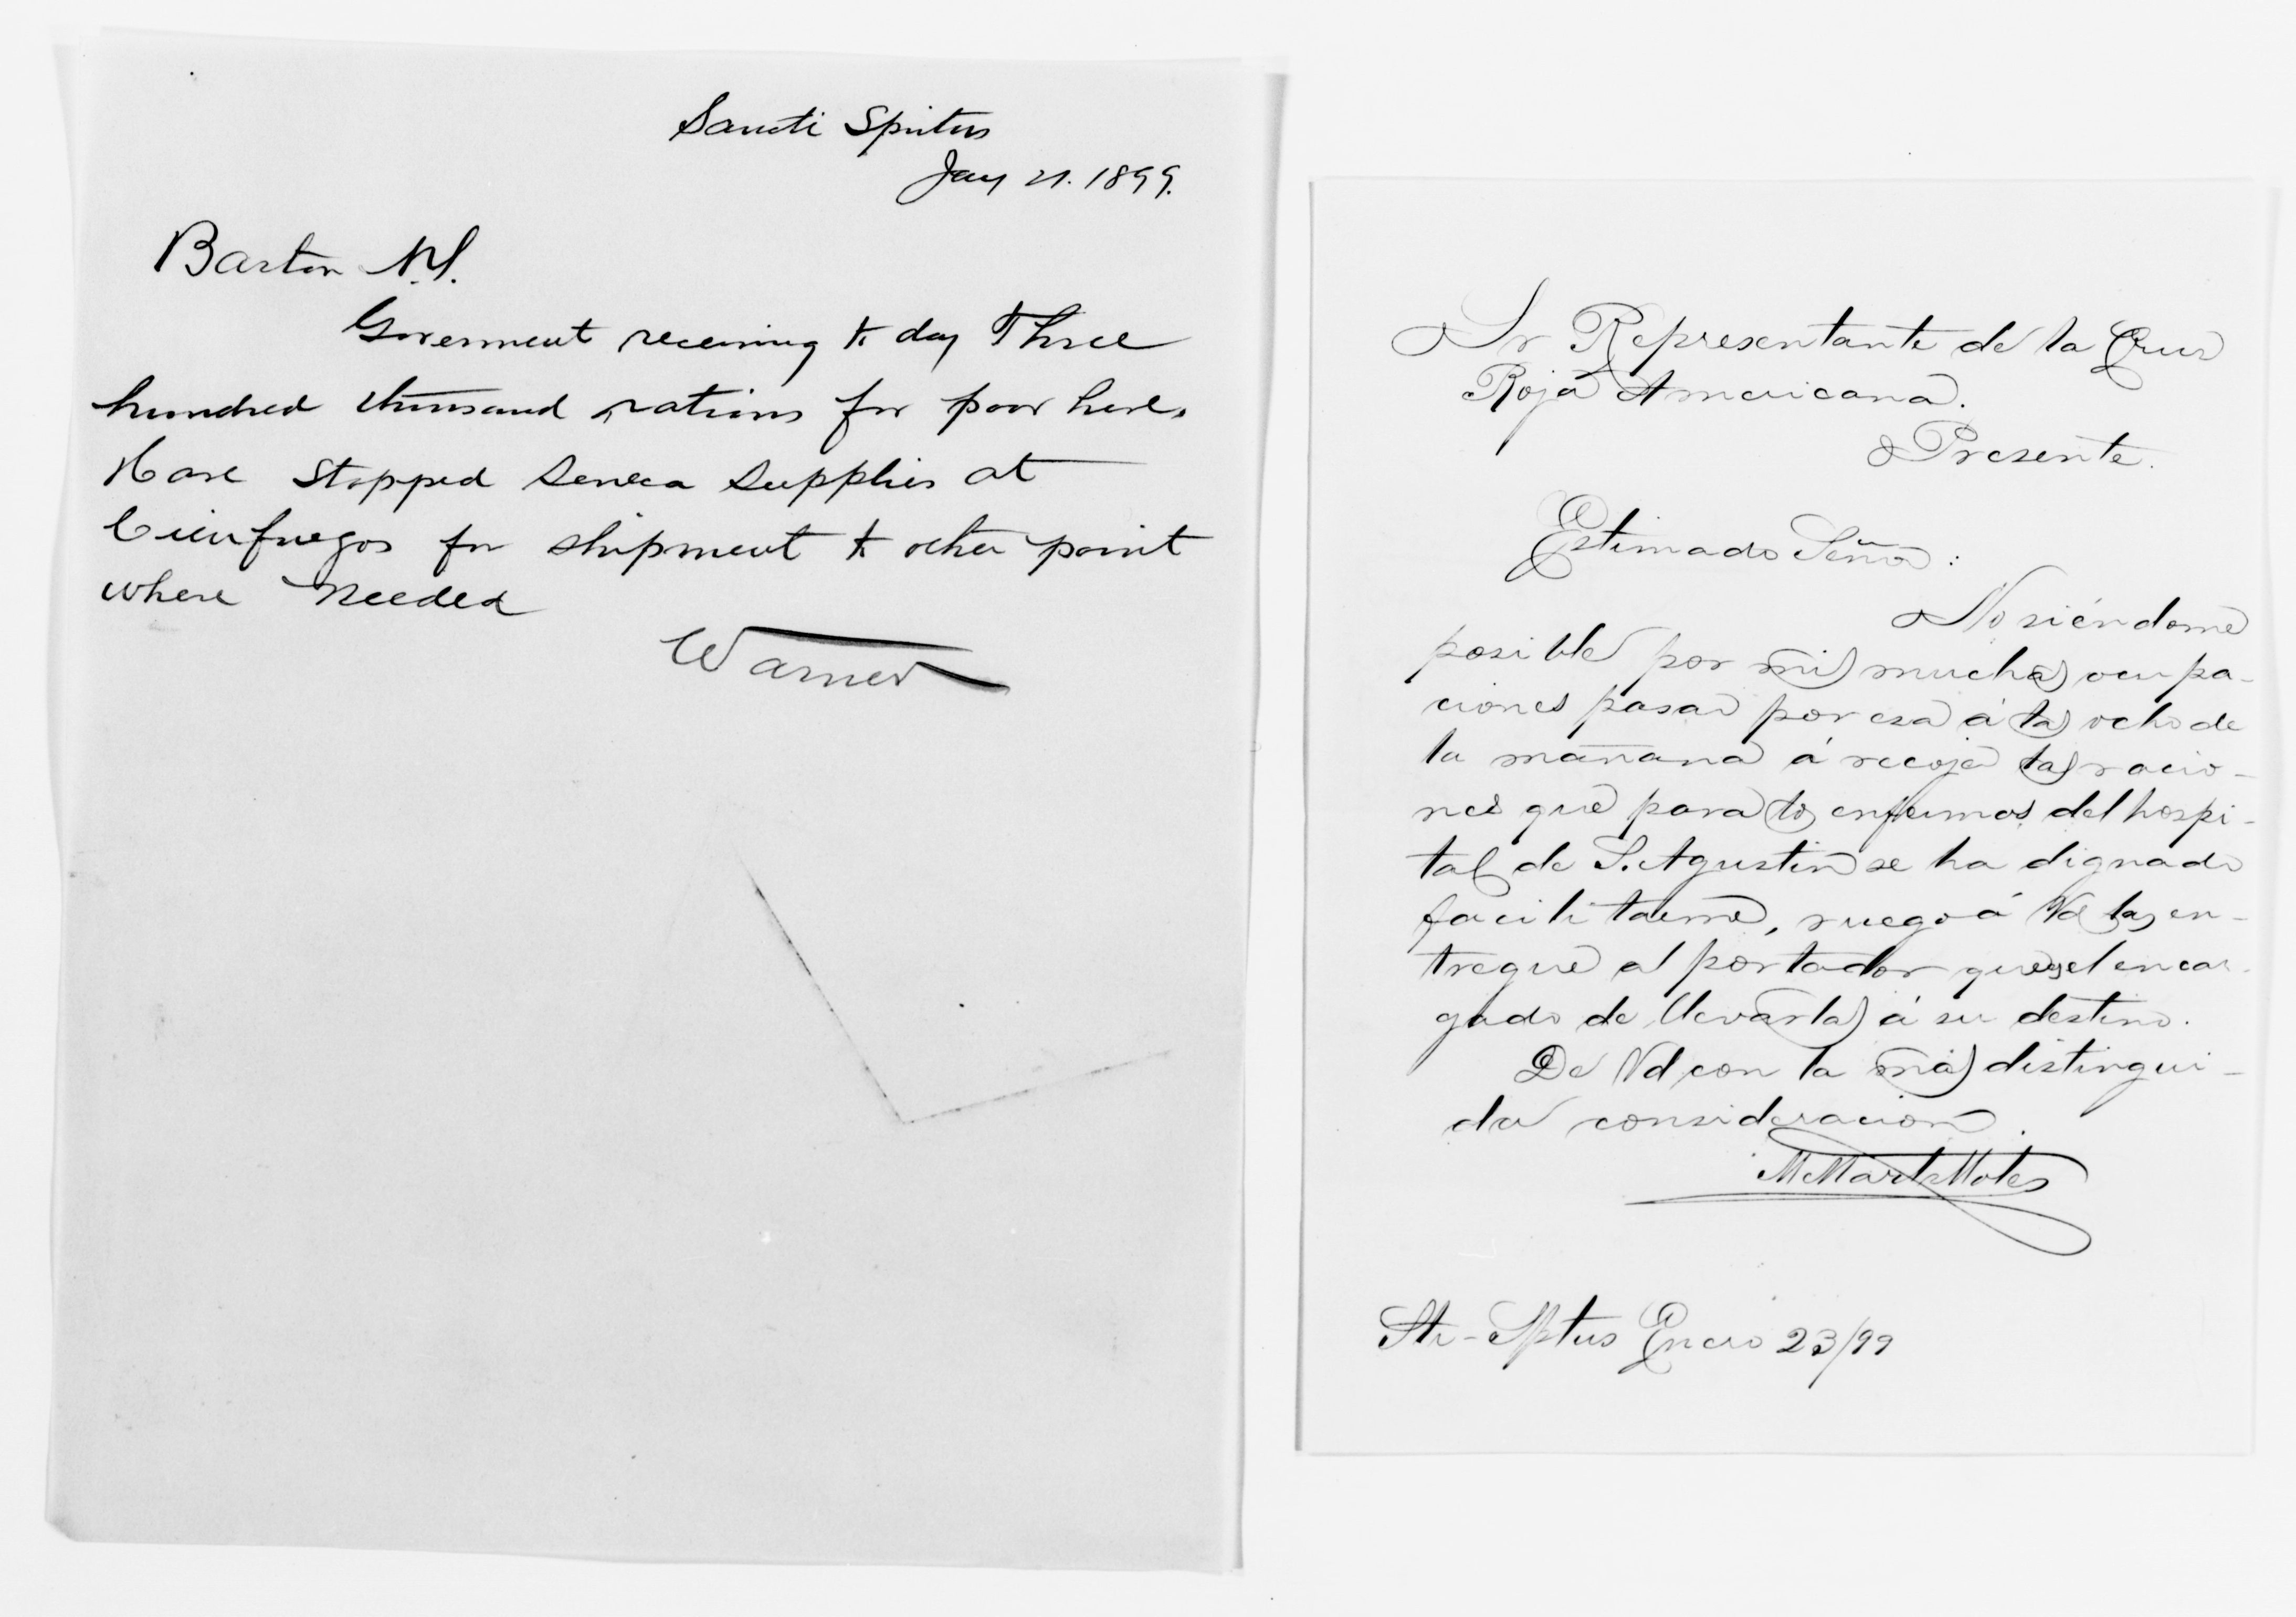 Sancti Spiritus
Jany 21. 1899.
Barton N.Y.
Goverment receiving to day Three
hundred thousand rations for poor here.
Have stopped Seneca supplies at
Cienfuegos for shipment to other point
where needed
Warner
Sr Representante de la Cruz
Roja Americana.
Presente.
Estimado Señor:
No siéndome
posible por mis muchas ocupa-
ciones pasar por esa á las ocho de
la mañana á recojer las racio-
nes que para los enfermos del hospi-
tal de S. Agustin se ha dignado
facilitarme, ruego á Vd las en-
tregue al portador que es el encar-
gado de llevarlas á su destino.
De Vd con la más distingui-
da consideracion.
Sti-Sptus Enero 23/99